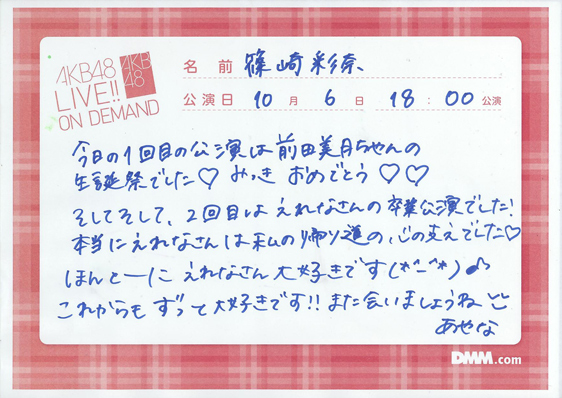 AKB48
LIVE!!
ON DEMAND
AKB
48
名前 篠崎彩奈
公演日 10月 6日 18:00 公演
今日の1回目の公演は前田美月ちゃんの
生誕祭でした♡ みっき おめでとう♡♡
そしてそして、2回目はえれなさんの卒業公演でした!
本当にえれなさんは私の帰り道の、心の支えでした♡
ほんとーに えれなさん大好きです(*^_^*)♪
これからも ずっと大好きです!! また会いましょうね
あやな
DMM.com